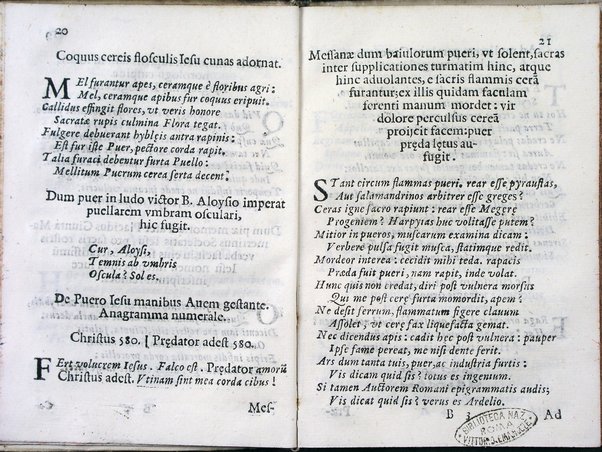 20
Coquus cereis flosculis Iesu cunas adornat.
MEl furantur apes, ceramque è floribus agri:
Mel, ceramque apibus fur coquus eripuit.
Callidus effingit flores, vt veris honore
Sacratæ rupis culmina Flora tegat.
Fulgere debuerant hyblęis antra rapinis:
Est fur iste Puer, pectore corda rapit.
Talia furaci debentur furta Puello:
Mellitum Puerum cerea serta decent.
Dum puer in ludo victor B. Aloysio imperat
puellarem vmbram osculari,
hic fugit.
Cur, Aloysi,
Temnis ab vmbris
Oscula? Sol es.
De Puero Iesu manibus Auem gestante.
Anagramma numerale.
Christus 580. [ Prędator adest 580.
FErt volucrem Iesus. Falco est. Prędator amorū
Christus adest. Vtinam sint mea corda cibus!
Mes-
21
Messanæ dum baiulorum pueri, vt solent, sacras
inter supplicationes turmatim hinc, atque
hinc aduolantes, e sacris flammis cerā
furantur; ex illis quidam faculam
ferenti manum mordet: vir
dolore perculsus cereā
proijcit facem: puer
pręda lętus au-
fugit.
STant circum flammas pueri. rear esse pyraustas,
Aut salamandrinos arbitrer esse greges?
Ceras igne sacro rapiunt: rear esse Megerę
Progeniem? Harpyras huc volitasse putem?
Mitior in pueros, muscarum examina dicam:
Verbere pulsa fugit musca, statimque redit.
Mordeor interea: cecidit mihi teda. rapacis
Præda fuit pueri, nam rapit, inde volat.
Hunc quis non credat, diri post vulnera morsus
Qui me post cerę furta momordit, apem?
Ne desit ferrum, flammatum figere clauum
Assolet, vt cerę fax liquefacta gemat.
Nec dicendus apis: cadit hec post vulnera: pauper
Ipse fame pereat, me nisi dente ferit.
Ars dum tanta tuis, puer, ac industria furtis:
Vis dicam quid sis? totus es ingenium.
Si tamen Auctorem Romani epigrammatis audis;
Vis dicat quid sis? verus es Ardelio.
B 3 Ad
BIBLIOTECA NAZ.
ROMA
VITTORIO EMANUELE